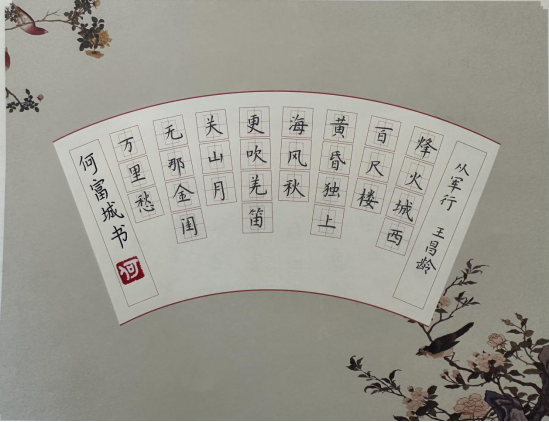 从军行 王昌龄
烽火城西
百尺楼
黄昏独上
海风秋
更吹羌笛
关山月
无那金闺
万里愁
何富城书
何